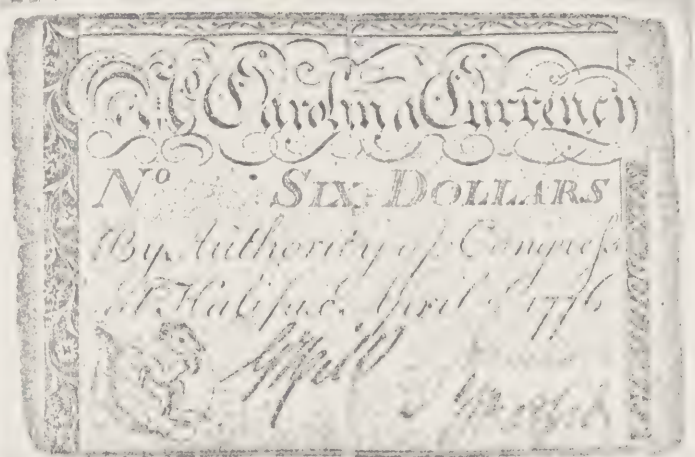 Nº Carolina Currency
Nº SIX DOLLARS
By Authority of Congress
At Halifax April 2d 1776